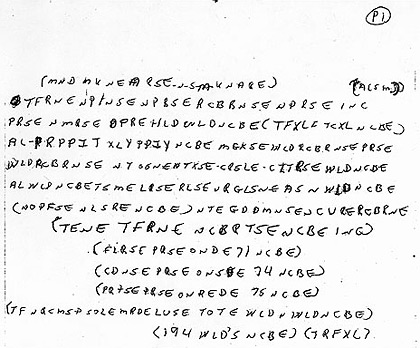 (P1)
(MND MKNEARSE-N-S-TAKNARE) (ACSM)
TFRNENPINSENPBSERCBBNSENPRSE INC
PRSE NMRSE OPREHLDWLDNCBE(TFXLF TCXL NCBE)
AL-PRPPIT XLYPPIY NCBE MGKSEWLDRCBRNSEPRSE
WLDRCBRNSE NTOSNENTXSE-CRSLE-CITRSEWLDNCBE
ALWLDNCBETSMELRSERLSEURGLSNEASNWLDNCBE
(NOPFSENLSRENCBE) NTEGDDMNSENCURERCBRNE
(TENE TFRNE NCBRTSENCBE ING)
(FLRSE PRSEONDE 71 NCBE)
(CDNSE PRSEONSDE 74 NCBE)
(PRTSE PRSEONREDE 75 NCBE)
(TFNQCMSP SOLEMRDELUSE TOTE WLDN WLDNCBE)
(194 WLD'S NCBE) (TRFXL)